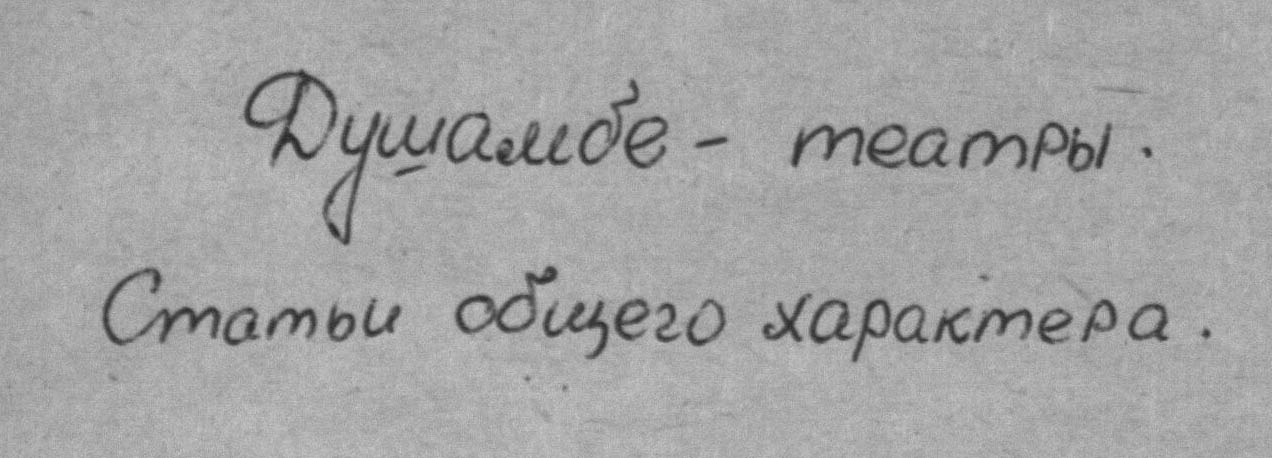 Душамбе - театры.
Статьи общего характера.